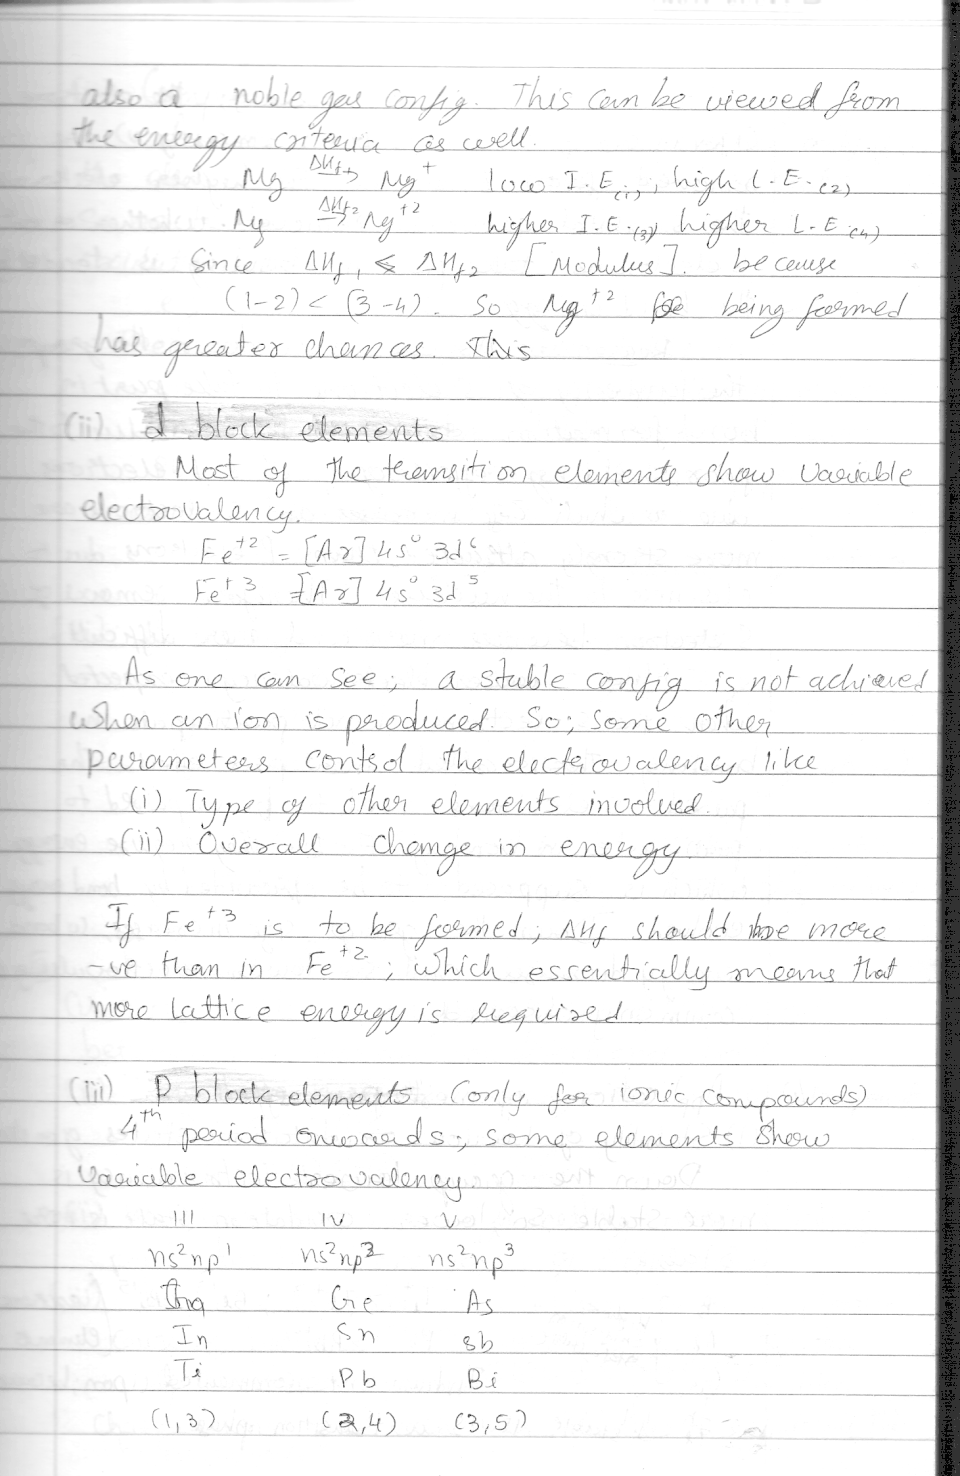 also a noble gas config. This can be viewed from
the energy criteria as well.
Mg ΔHf→ Mg⁺ low I.E.(1), high L.E.(2)
Mg ΔHf2→ Mg⁺² higher I.E.(3) higher L.E(4)
Since ΔHf1 ≤ ΔHf2 [Modulus]. because
(1-2) < (3-4). So Mg⁺² being formed
has greater chances. This
(ii) d block elements
Most of the transition elements show variable
electrovalency.
Fe⁺² = [Ar] 4s⁰ 3d⁶
Fe⁺³ [Ar] 4s⁰ 3d⁵
As one can see, a stable config is not achieved
when an ion is produced. So; some other
parameters control the electrovalency like
(i) Type of other elements involved.
(ii) Overall change in energy.
If Fe⁺³ is to be formed, ΔHf should be more
-ve than in Fe⁺²; which essentially means that
more lattice energy is required
(iii) P block elements (only for ionic compounds)
4th period onwards; some elements show
variable electrovalency.
III IV V
ns²np¹ ns²np² ns²np³
Ga Ge As
In Sn Sb
Ti Pb Bi
(1,3) (2,4) (3,5)